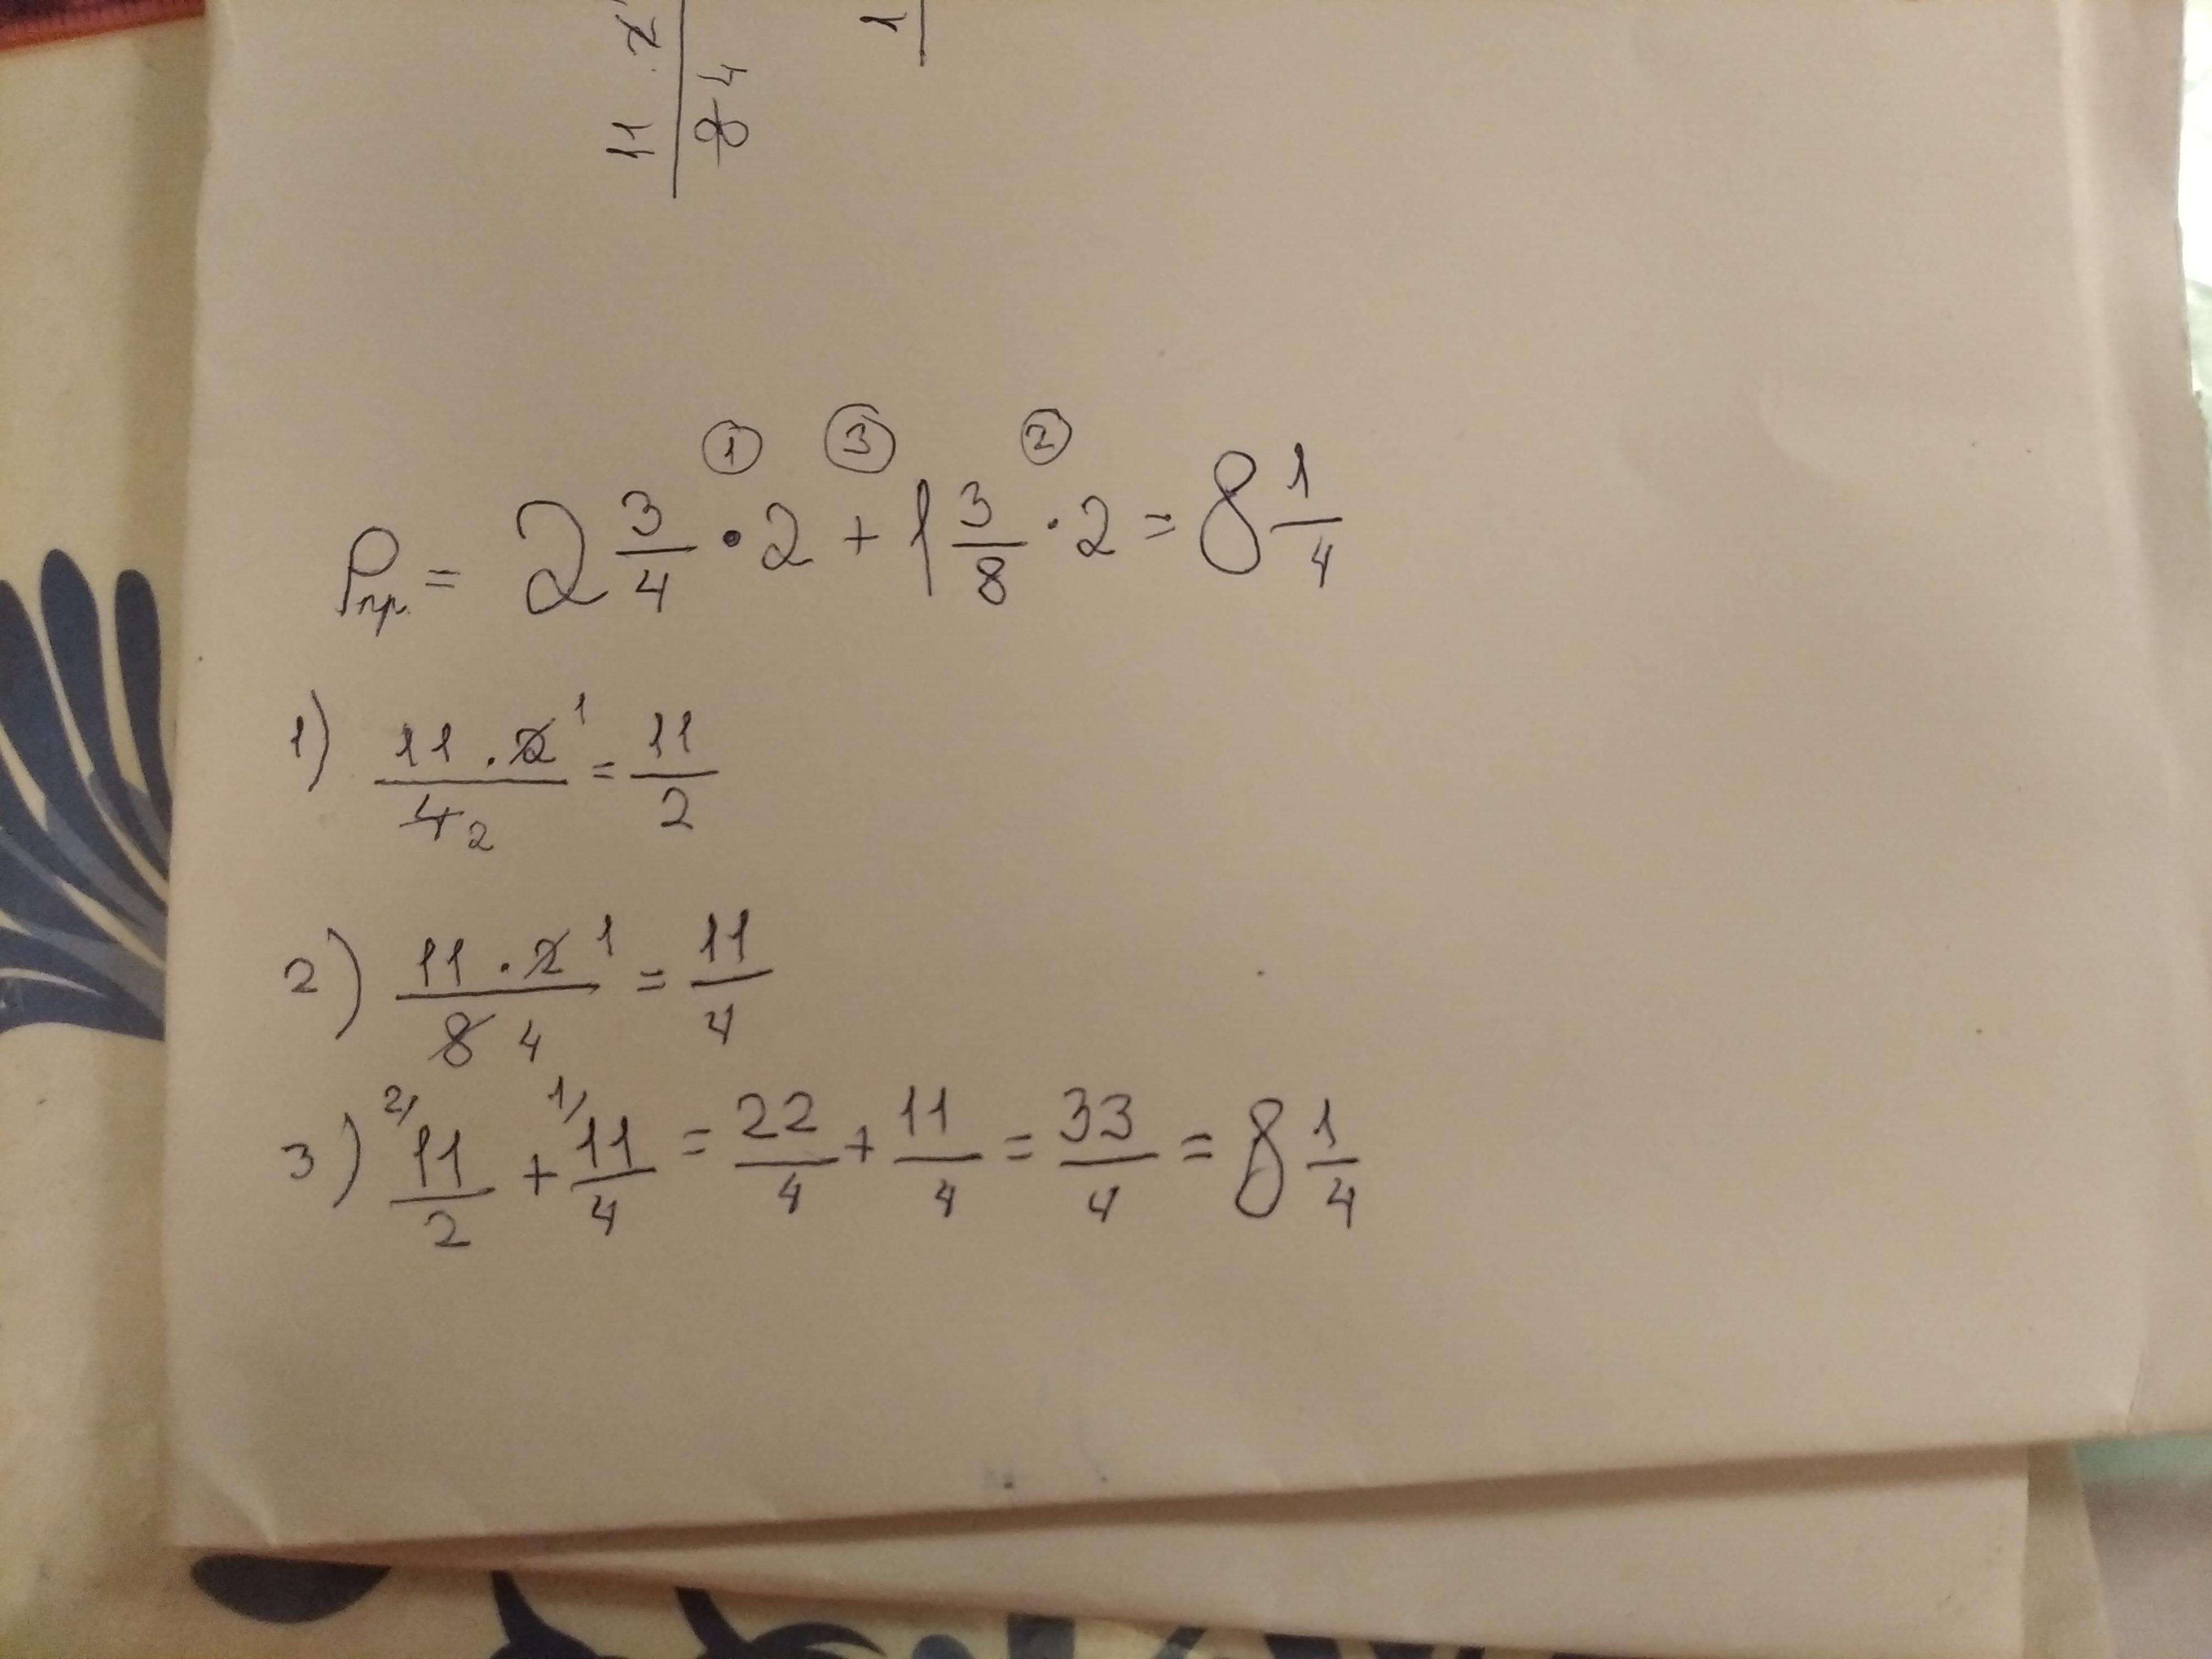 11 · 2
8 4
1
① ③ ②
Pпр. = 2 3/4 · 2 + 1 3/8 · 2 = 8 1/4
1) 11 · 2 1 / 4 2 = 11/2
2) 11 · 2 1 / 8 4 = 11/4
3) 2/ 11/2 + 1/ 11/4 = 22/4 + 11/4 = 33/4 = 8 1/4